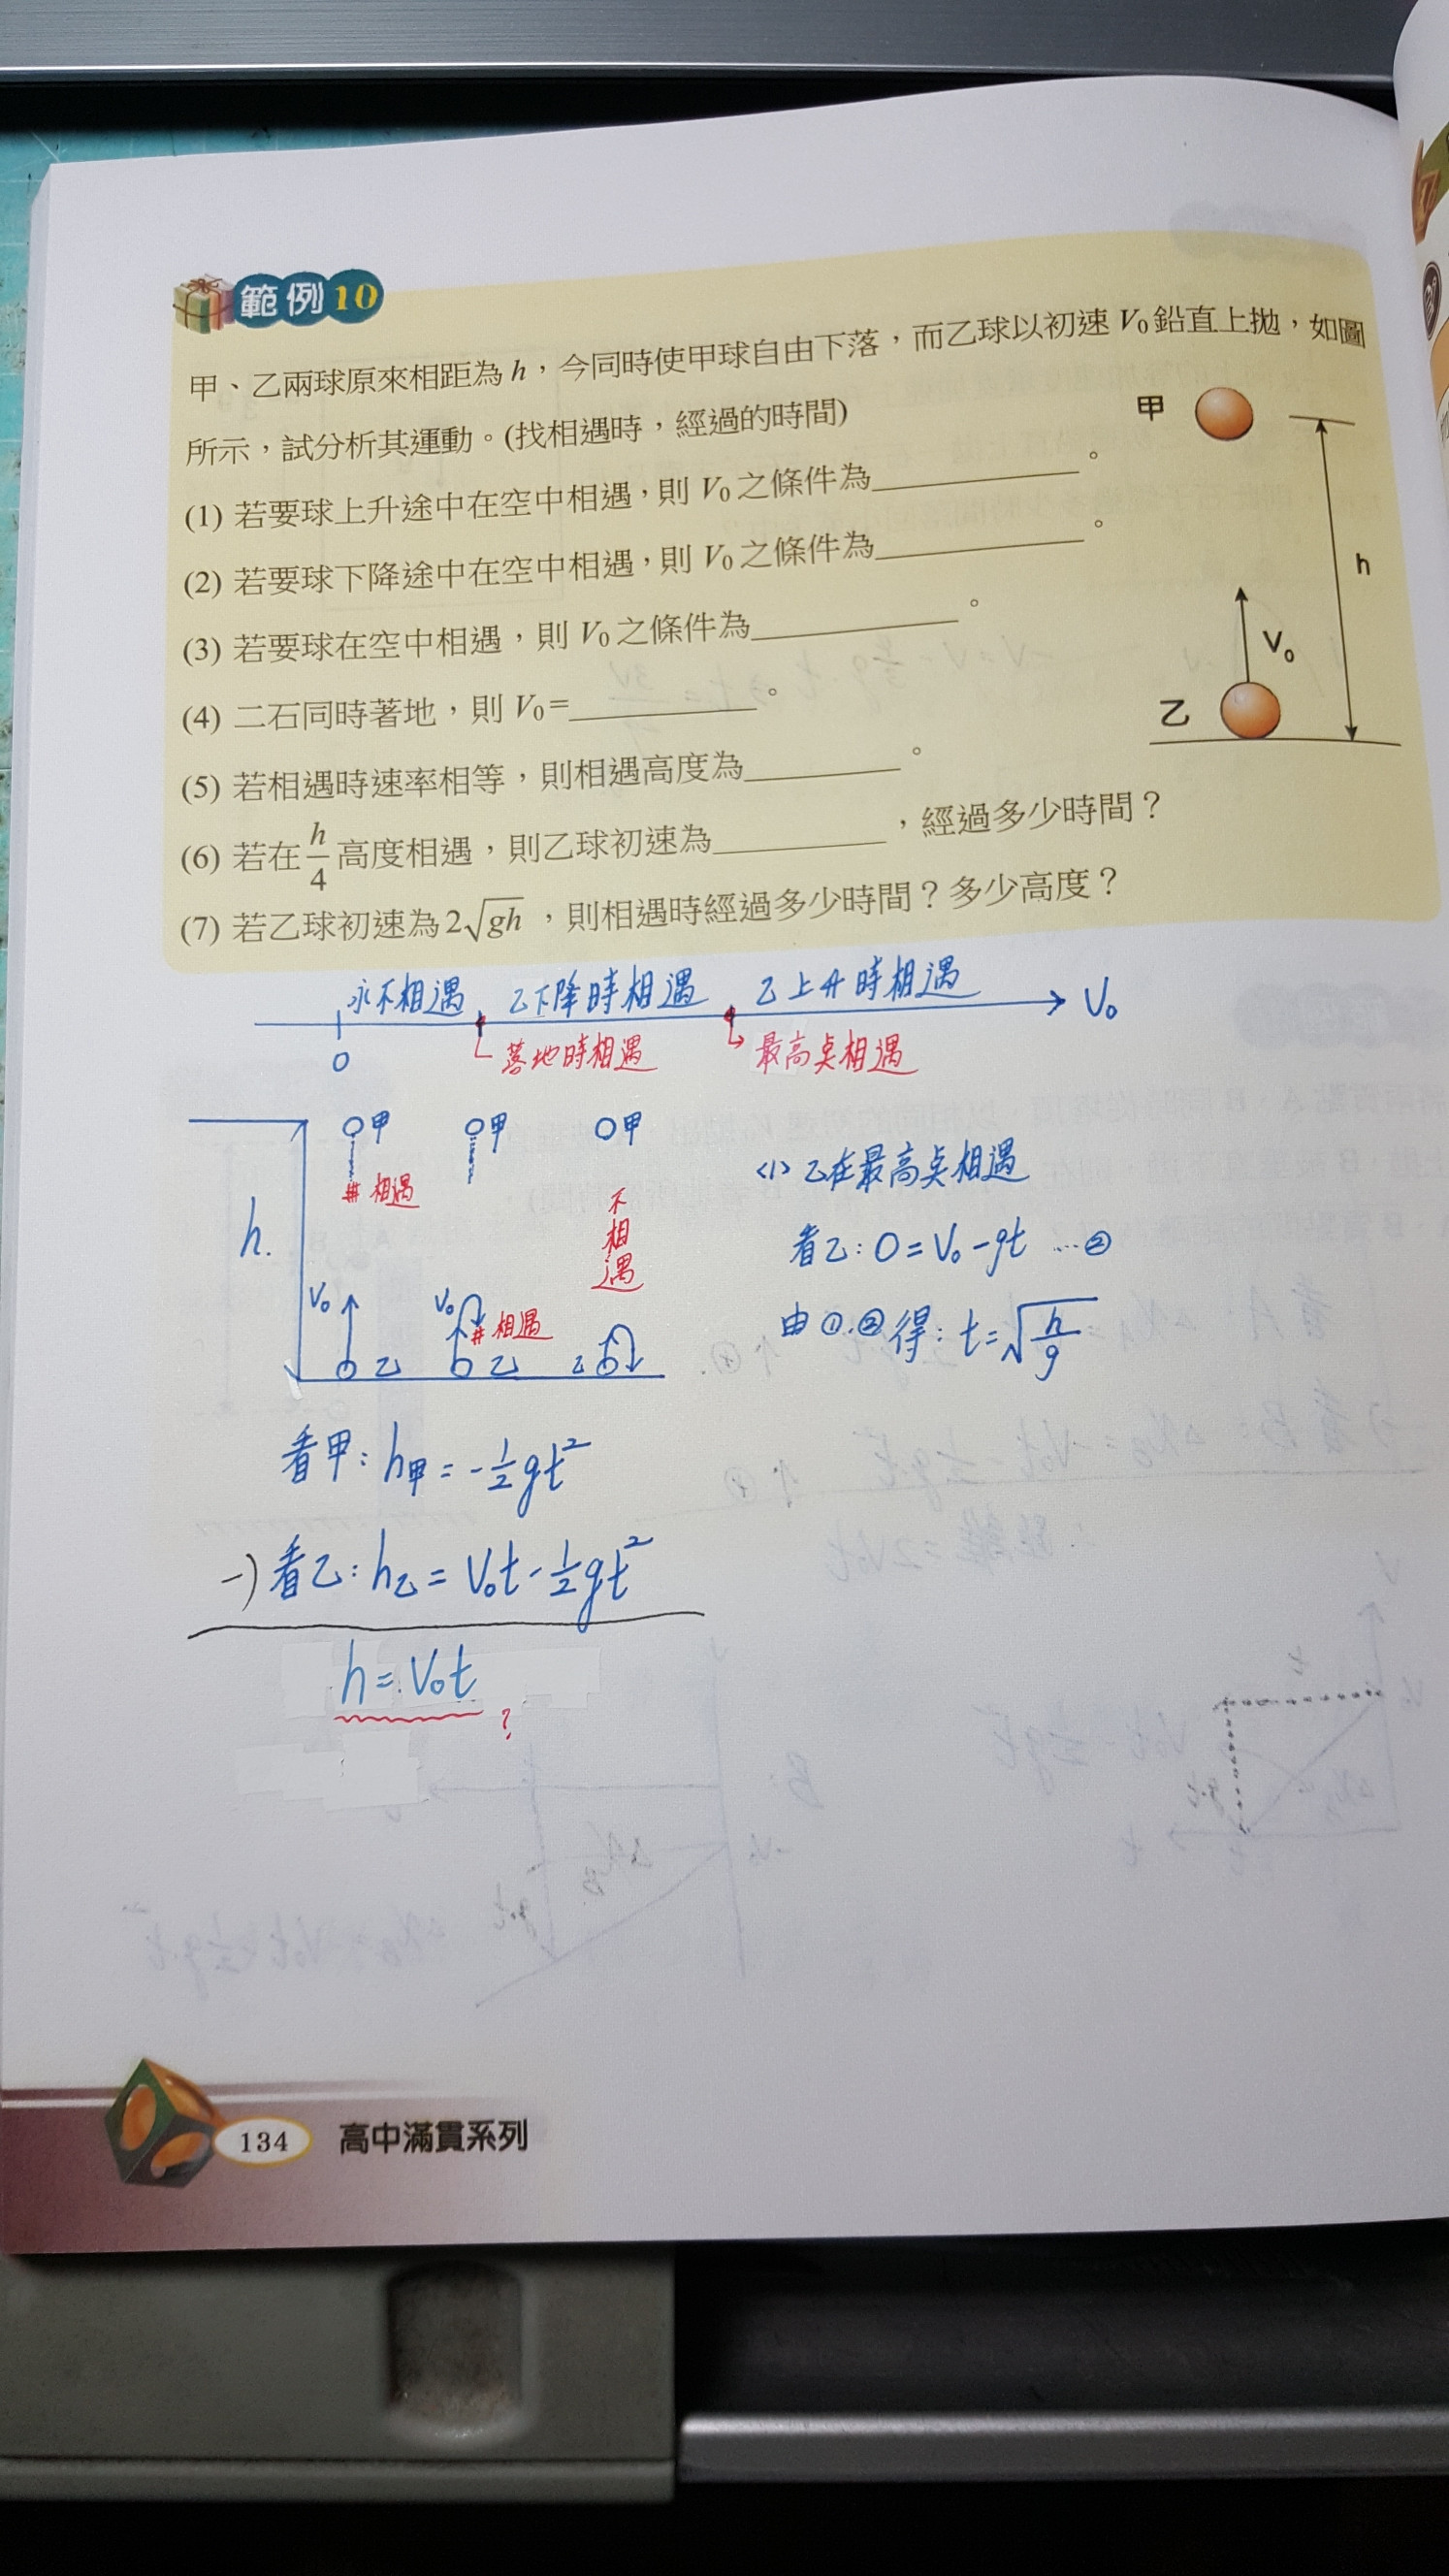 範例10
甲、乙兩球原來相距為h，今同時使甲球自由下落，而乙球以初速V₀鉛直上拋，如圖
所示，試分析其運動。(找相遇時，經過的時間)
(1) 若要球上升途中在空中相遇，則 V₀之條件為__________。
(2) 若要球下降途中在空中相遇，則 V₀之條件為__________。
(3) 若要球在空中相遇，則 V₀之條件為__________。
(4) 二石同時著地，則 V₀=__________。
(5) 若相遇時速率相等，則相遇高度為__________。
(6) 若在h/4高度相遇，則乙球初速為__________，經過多少時間？
(7) 若乙球初速為2√gh，則相遇時經過多少時間？多少高度？
甲
h
V₀
乙
永不相遇 乙下降時相遇 乙上升時相遇 V₀
0 落地時相遇 最高點相遇
甲 甲 甲
相遇
不相遇
h.
V₀ V₀ 相遇
乙 乙 乙
<1> 乙在最高點相遇
看乙：0=V₀-gt …②
由①.②得：t=√(h/g)
看甲：h甲=-½gt²
-) 看乙：h乙=V₀t-½gt²
h=V₀t ?
134 高中滿貫系列